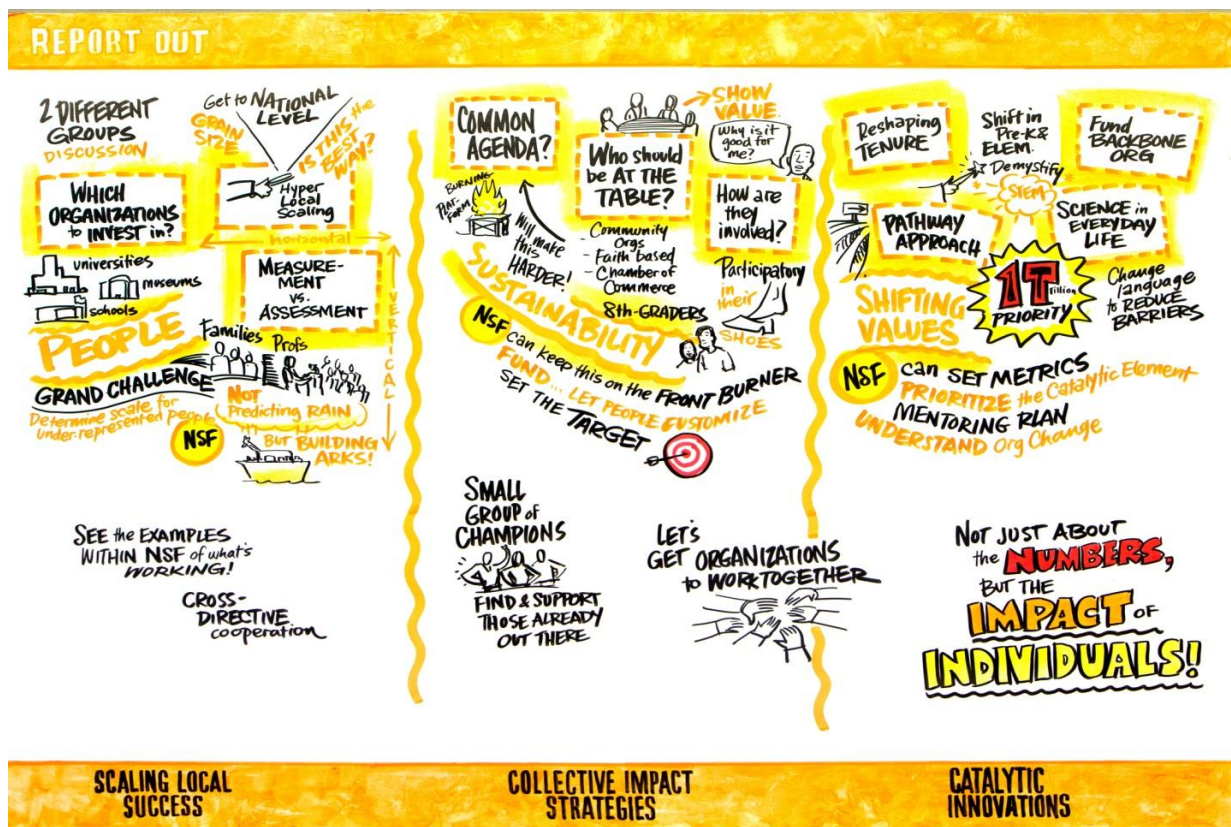 REPORT OUT
2 DIFFERENT
GROUPS
DISCUSSION
Get to NATIONAL
LEVEL
GRAIN
SIZE
IS THIS the
BEST
WAY?
WHICH
ORGANIZATIONS
to INVEST in?
Hyper
Local
Scaling
horizontal
VERTICAL
universities
museums
schools
MEASURE-
MENT
vs.
ASSESSMENT
PEOPLE
Families
Profs
GRAND CHALLENGE
Determine scale for
under-represented people
NSF
NOT
Predicting RAIN
BUT BUILDING
ARKS!
SEE the EXAMPLES
WITHIN NSF of what's
WORKING!
CROSS-
DIRECTIVE
cooperation
COMMON
AGENDA?
Who should
be AT THE
TABLE?
SHOW
VALUE
Why is it
good for
me?
BURNING
PLAT-
FORM
Will make
this
HARDER!
How are
they
involved?
Community
Orgs
- Faith based
- Chamber of
Commerce
8th-GRADERS
Participatory
in their
SHOES
SUSTAINABILITY
NSF can keep this on the FRONT BURNER
FUND... LET PEOPLE CUSTOMIZE
SET THE TARGET
SMALL
GROUP of
CHAMPIONS
FIND & SUPPORT
THOSE ALREADY
OUT THERE
LET'S
GET ORGANIZATIONS
to WORK TOGETHER
Reshaping
TENURE
Shift in
Pre-K &
ELEM.
Demystify
STEM
Fund
BACKBONE
ORG
PATHWAY
APPROACH
SCIENCE in
EVERYDAY
LIFE
SHIFTING
VALUES
1T
rillion
PRIORITY
Change
language
to REDUCE
BARRIERS
NSF can SET METRICS
PRIORITIZE the Catalytic Element
MENTORING PLAN
UNDERSTAND Org Change
NOT JUST ABOUT
the NUMBERS,
BUT THE
IMPACT OF
INDIVIDUALS!
SCALING LOCAL
SUCCESS
COLLECTIVE IMPACT
STRATEGIES
CATALYTIC
INNOVATIONS